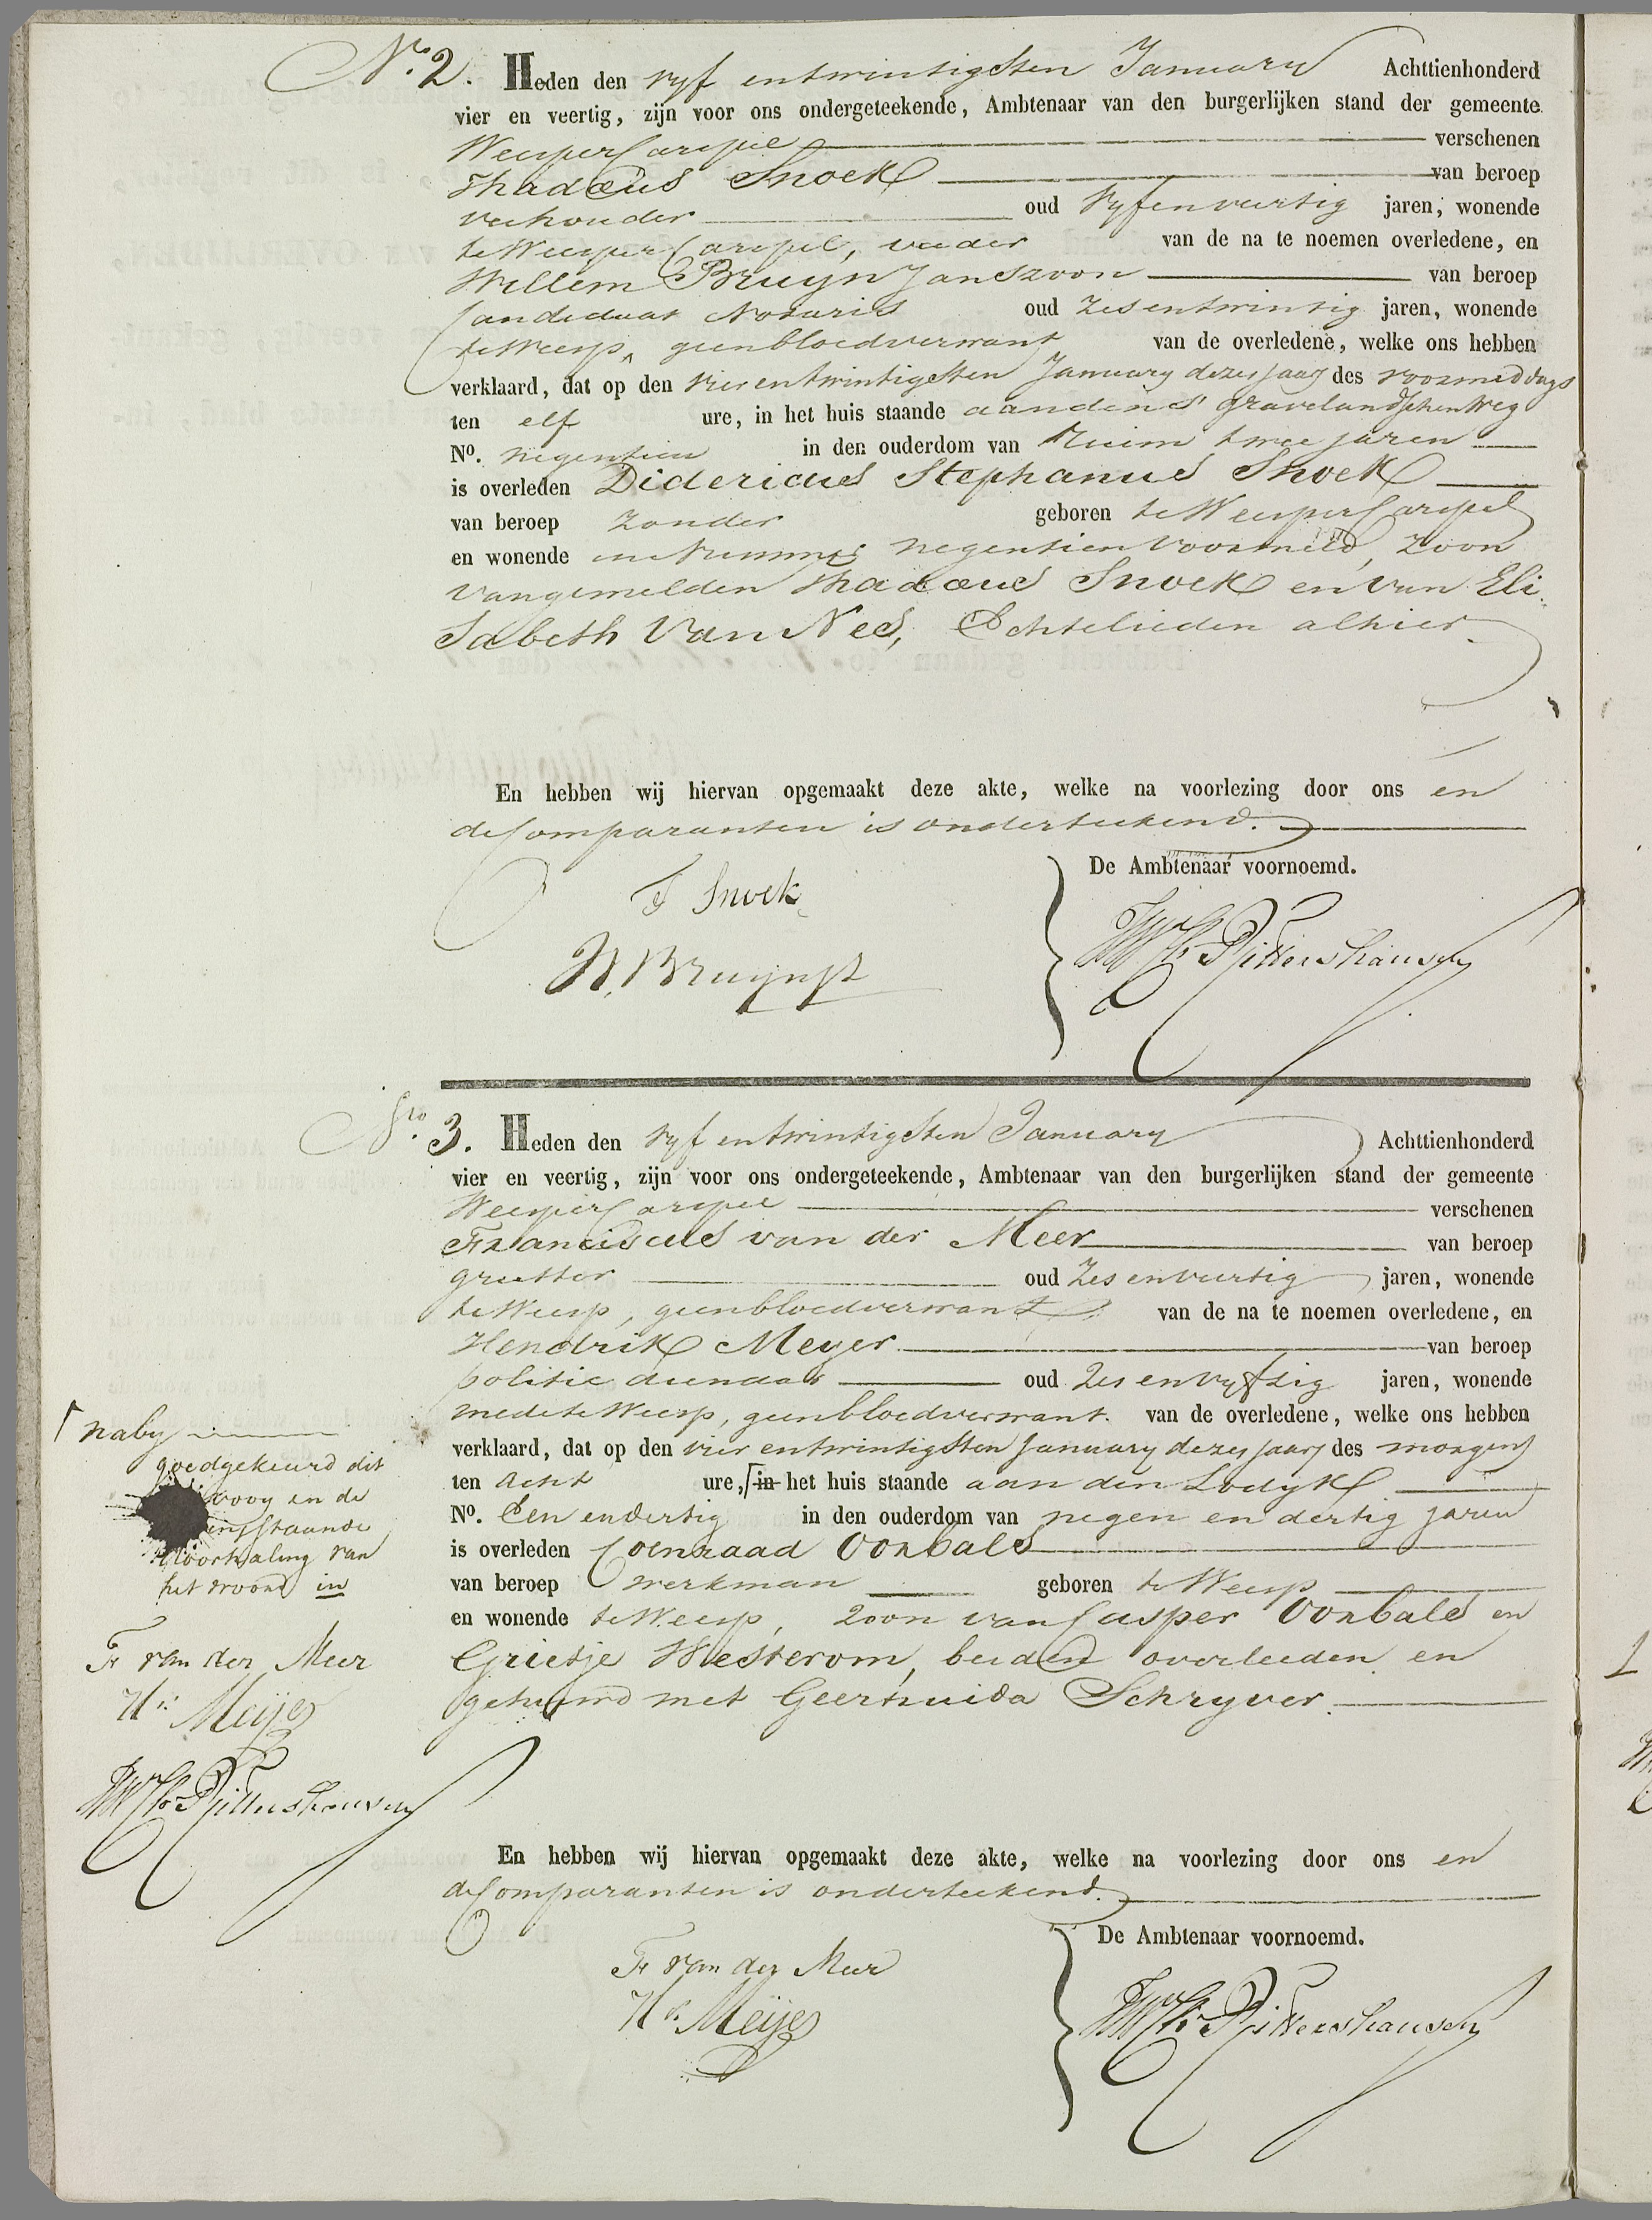 No. 2. Heden den vyf entwintigsten January Achttienhonderd
vier en veertig, zijn voor ons ondergeteekende, Ambtenaar van den burgerlijken stand der gemeente
WeesperCarspel verschenen
Thadæus Snoek van beroep
veehouder oud vyfenveertig jaren, wonende
te WeesperCarspel, vader van de na te noemen overledene, en
Willem Bruyn Janszoon van beroep
Candidaat Notaris oud zesentwintig jaren, wonende
te Weesp, geenbloedverwant van de overledene, welke ons hebben
verklaard, dat op den vierentwintigsten January dezes jaars des voormiddags
ten elf ure, in het huis staande aanden 's Gravelandschenweg
No. negentien in den ouderdom van ruim twee jaren
is overleden Didericus Stephanus Snoek
van beroep zonder geboren te WeesperCarspel
en wonende in nummer negentien voormeld, zoon
vangemelden Thadæus Snoek en van Eli-
sabeth Van Nes, Echtelieden alhier.
En hebben wij hiervan opgemaakt deze akte, welke na voorlezing door ons en
de Comparanten is onderteekend.
De Ambtenaar voornoemd.
T Snoek
W. Bruijn Jz
No. 3. Heden den vyf entwintigsten January Achttienhonderd
vier en veertig, zijn voor ons ondergeteekende, Ambtenaar van den burgerlijken stand der gemeente
WeesperCarspel verschenen
Franciscus van der Meer van beroep
grutter oud zesenveertig jaren, wonende
te Weesp, geenbloedverwant van de na te noemen overledene, en
Hendrik Meyer van beroep
politie dienaar oud zesenvyftig jaren, wonende
mede te Weesp, geenbloedverwant. van de overledene, welke ons hebben
verklaard, dat op den vier entwintigsten January dezes jaars des morgens
ten acht ure, in het huis staande aan den Lodyk
No. Een endertig in den ouderdom van negen en dertig jaren
is overleden Coenraad Oonbals
van beroep werkman geboren te Weesp
en wonende te Weesp, zoon van Casper Oonbals en
Grietje Westerom, beiden overleeden en
gehuwd met Geertruida Schryver.
naby
goedgekeurd dit
en de
staande
doorhaling van
het woord in
Fr van der Meer
Hk Meijer
En hebben wij hiervan opgemaakt deze akte, welke na voorlezing door ons en
de Comparanten is onderteekend.
De Ambtenaar voornoemd.
Fr van der Meer
Hk Meijer